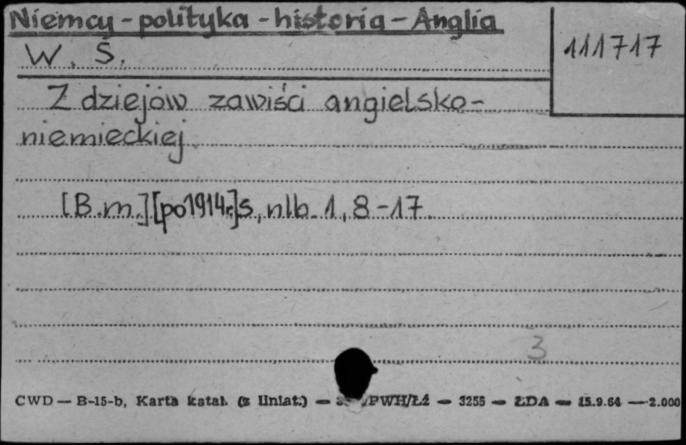 Niemcy - polityka - historia - Anglia
W. S.
111717
Z dziejów zawiści angielsko-
niemieckiej
[B.m.][po1914r.]s, nlb. 1, 8-17
3
CWD — B-15-b, Karta katal. (z liniat.) — PWH/Łź — 3255 — ŁDA — 15.9.64 — 2.000